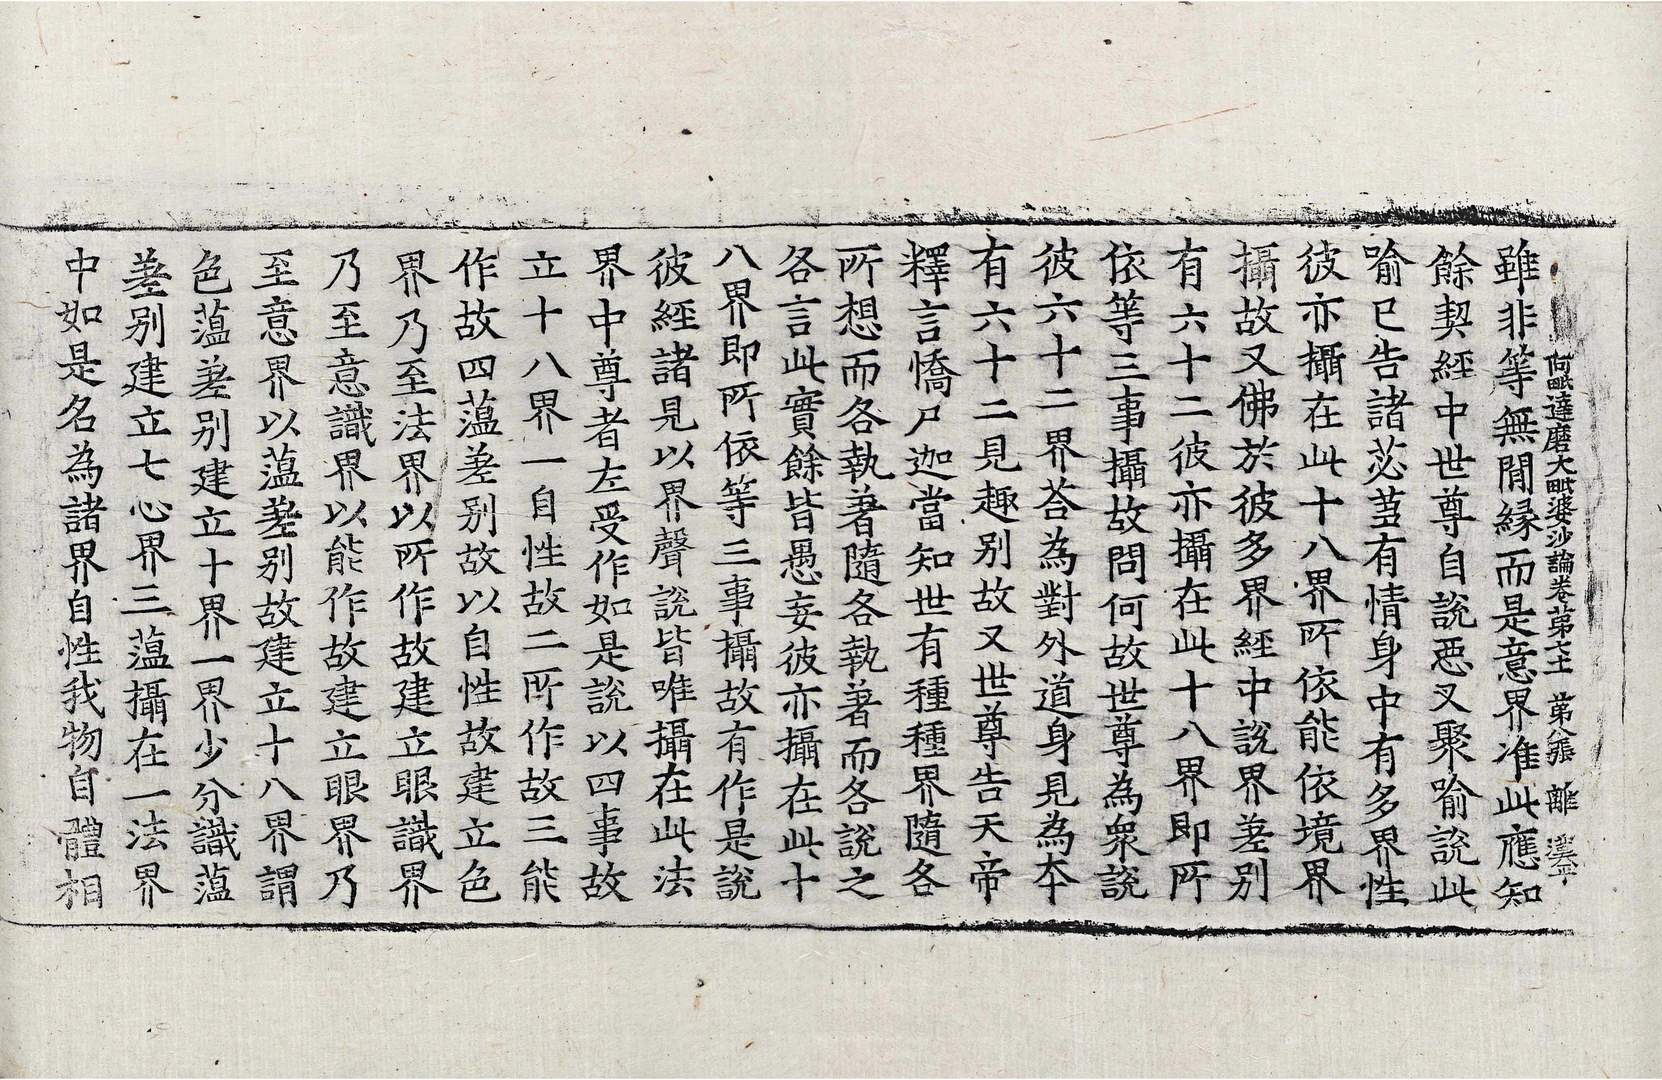 阿毗達磨大毗婆沙論卷第七十一 第八張 離
雖非等無間緣而是意界准此應知
餘契經中世尊自說惡叉聚喻說此
喻已告諸苾芻有情身中有多界性
彼亦攝在此十八界所依能依境界
攝故又佛於彼多界經中說界差別
有六十二彼亦攝在此十八界即所
依等三事攝故問何故世尊為衆說
彼六十二界荅為對外道身見為本
有六十二見趣別故又世尊告天帝
釋言憍尸迦當知世有種種界隨各
所想而各執著隨各執著而各說之
各言此實餘皆愚妄彼亦攝在此十
八界即所依等三事攝故有作是說
彼經諸見以界聲說皆唯攝在此法
界中尊者左受作如是說以四事故
立十八界一自性故二所作故三能
作故四蘊差別故以自性故建立色
界乃至法界以所作故建立眼識界
乃至意識界以能作故建立眼界乃
至意界以蘊差別故建立十八界謂
色蘊差別建立十界一界少分識蘊
差別建立七心界三蘊攝在一法界
中如是名為諸界自性我物自體相